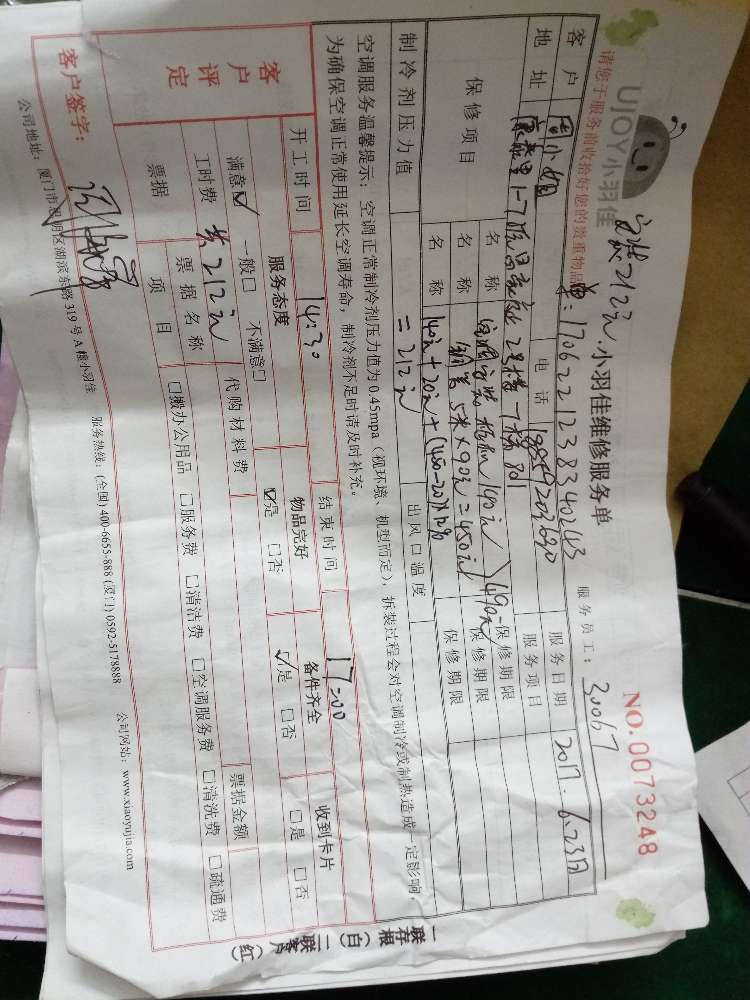 UJOY小羽佳
安装212元.小羽佳维修服务单
NO.0073248
请您于服务前收拾好您的贵重物品
单:1706221238340243
服务员工: 30067
客户 周小姐 电话 服务日期 2017.6.23日
地址 康泰里1-7 2号楼 服务项目
保修项目 名称 空调安装 移机140元 490元 保修期限
名称 铜管5米×90元=450元 保修期限
名称 140元+20元+ 保修期限
制冷剂压力值 =212元 出风口温度
空调服务温馨提示:空调正常制冷剂压力值为0.45mpa(视环境、机型而定),拆装过程会对空调制冷或制热造成一定影响,
为确保空调正常使用延长空调寿命,制冷剂不足时请及时补充。
开工时间 14:30 结束时间 17:00
客户评定 服务态度 物品完好 备件齐全 收到卡片
满意☑ 一般□ 不满意□ ☑是 □否 ☑是 □否 □是 □否
工时费 共212元 代购材料费 票据金额
票据 票据名称
项目 □搬办公用品 □服务费 □清洁费 □空调服务费 □清洗费 □疏通费
客户签字:
公司地址:厦门市思明区湖滨东路319号A幢小羽佳 服务热线:(全国)400-6655-888 (厦门)0592-5178888 公司网站:www.xiaoyujia.com
一联存根(白) 二联客户(红)